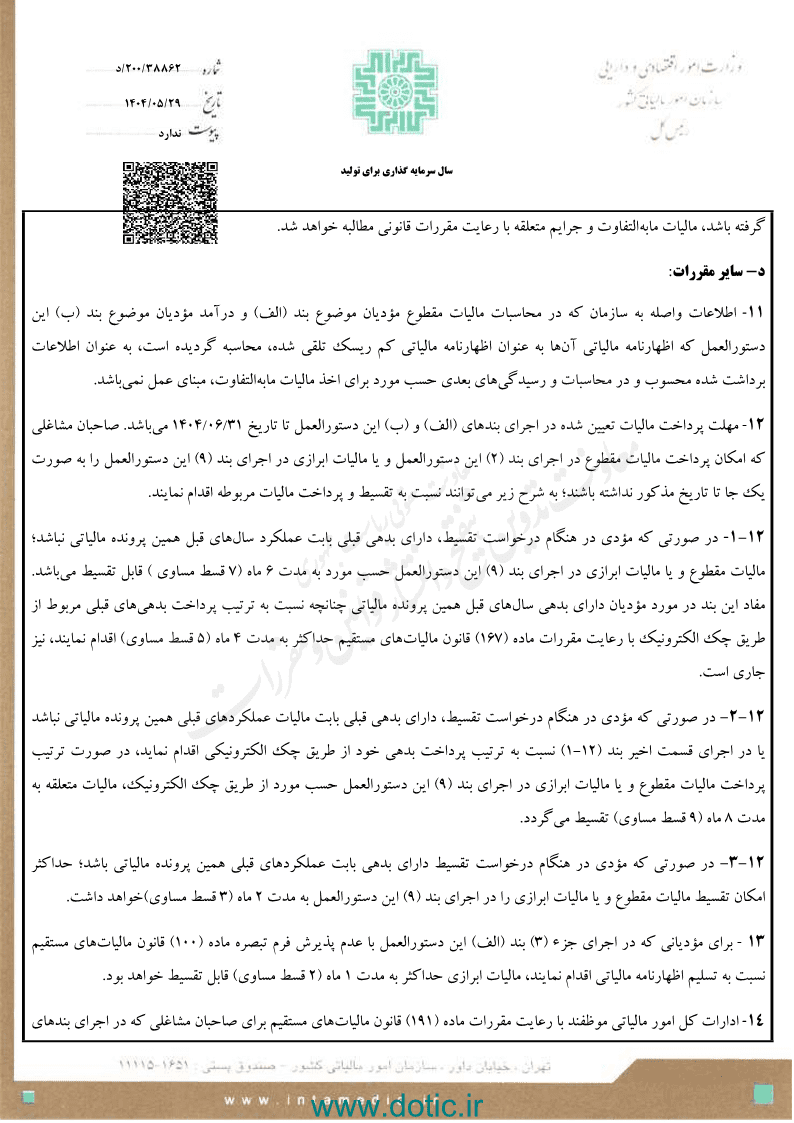 وزارت امور اقتصادی و دارایی
سازمان امور مالیاتی کشور
رئیس کل
شماره ۲۰۰/۳۸۸۶۲/د
تاریخ ۱۴۰۴/۰۵/۲۹
پیوست ندارد
سال سرمایه گذاری برای تولید
گرفته باشد، مالیات مابه‌التفاوت و جرایم متعلقه با رعایت مقررات قانونی مطالبه خواهد شد.
د- سایر مقررات:
۱۱- اطلاعات واصله به سازمان که در محاسبات مالیات مقطوع مؤدیان موضوع بند (الف) و درآمد مؤدیان موضوع بند (ب) این
دستورالعمل که اظهارنامه مالیاتی آن‌ها به عنوان اظهارنامه مالیاتی کم ریسک تلقی شده، محاسبه گردیده است، به عنوان اطلاعات
برداشت شده محسوب و در محاسبات و رسیدگی‌های بعدی حسب مورد برای اخذ مالیات مابه‌التفاوت، مبنای عمل نمی‌باشد.
۱۲- مهلت پرداخت مالیات تعیین شده در اجرای بندهای (الف) و (ب) این دستورالعمل تا تاریخ ۱۴۰۴/۰۶/۳۱ می‌باشد. صاحبان مشاغلی
که امکان پرداخت مالیات مقطوع در اجرای بند (۲) این دستورالعمل و یا مالیات ابرازی در اجرای بند (۹) این دستورالعمل را به صورت
یک جا تا تاریخ مذکور نداشته باشند؛ به شرح زیر می‌توانند نسبت به تقسیط و پرداخت مالیات مربوطه اقدام نمایند.
۱۲-۱- در صورتی که مؤدی در هنگام درخواست تقسیط، دارای بدهی قبلی بابت عملکرد سال‌های قبل همین پرونده مالیاتی نباشد؛
مالیات مقطوع و یا مالیات ابرازی در اجرای بند (۹) این دستورالعمل حسب مورد به مدت ۶ ماه (۷ قسط مساوی ) قابل تقسیط می‌باشد.
مفاد این بند در مورد مؤدیان دارای بدهی سال‌های قبل همین پرونده مالیاتی چنانچه نسبت به ترتیب پرداخت بدهی‌های قبلی مربوط از
طریق چک الکترونیک با رعایت مقررات ماده (۱۶۷) قانون مالیات‌های مستقیم حداکثر به مدت ۴ ماه (۵ قسط مساوی) اقدام نمایند، نیز
جاری است.
۱۲-۲- در صورتی که مؤدی در هنگام درخواست تقسیط، دارای بدهی قبلی بابت مالیات عملکردهای قبلی همین پرونده مالیاتی نباشد
یا در اجرای قسمت اخیر بند (۱۲-۱) نسبت به ترتیب پرداخت بدهی خود از طریق چک الکترونیکی اقدام نماید، در صورت ترتیب
پرداخت مالیات مقطوع و یا مالیات ابرازی در اجرای بند (۹) این دستورالعمل حسب مورد از طریق چک الکترونیک، مالیات متعلقه به
مدت ۸ ماه (۹ قسط مساوی) تقسیط می‌گردد.
۱۲-۳- در صورتی که مؤدی در هنگام درخواست تقسیط دارای بدهی بابت عملکردهای قبلی همین پرونده مالیاتی باشد؛ حداکثر
امکان تقسیط مالیات مقطوع و یا مالیات ابرازی را در اجرای بند (۹) این دستورالعمل به مدت ۲ ماه (۳ قسط مساوی)خواهد داشت.
۱۳ - برای مؤدیانی که در اجرای جزء (۳) بند (الف) این دستورالعمل با عدم پذیرش فرم تبصره ماده (۱۰۰) قانون مالیات‌های مستقیم
نسبت به تسلیم اظهارنامه مالیاتی اقدام نمایند، مالیات ابرازی حداکثر به مدت ۱ ماه (۲ قسط مساوی) قابل تقسیط خواهد بود.
۱۴- ادارات کل امور مالیاتی موظفند با رعایت مقررات ماده (۱۹۱) قانون مالیات‌های مستقیم برای صاحبان مشاغلی که در اجرای بندهای
تهران ، خیابان داور ، سازمان امور مالیاتی کشور - صندوق پستی : ۱۶۵۱-۱۱۱۱۵
www.dotic.ir